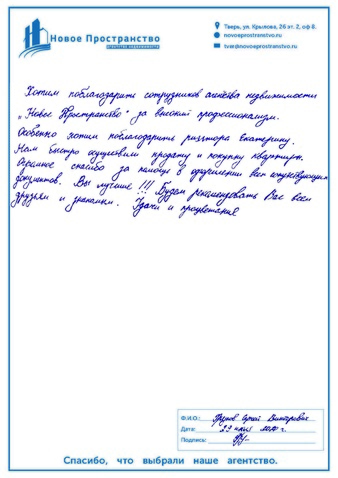 Новое Пространство
агентство недвижимости
Тверь, ул. Крылова, 26 эт. 2, оф 8.
novoeprostranstvo.ru
tver@novoeprostranstvo.ru
Хотим поблагодарить сотрудников агенства недвижимости
„Новое Пространство" за высокий профессионализм.
Особенно хотим поблагодарить риэлтора Екатерину.
Нам быстро осуществили продажу и покупку квартиры.
Огромное спасибо за помощь в оформлении всех сопутствующих
документов. Вы лучшие!!! Будем рекомендовать Вас всем
друзьям и знакомым. Удачи и процветания
Ф.И.О.: Сергей Викторович
Дата: 2020 г.
Подпись:
Спасибо, что выбрали наше агентство.